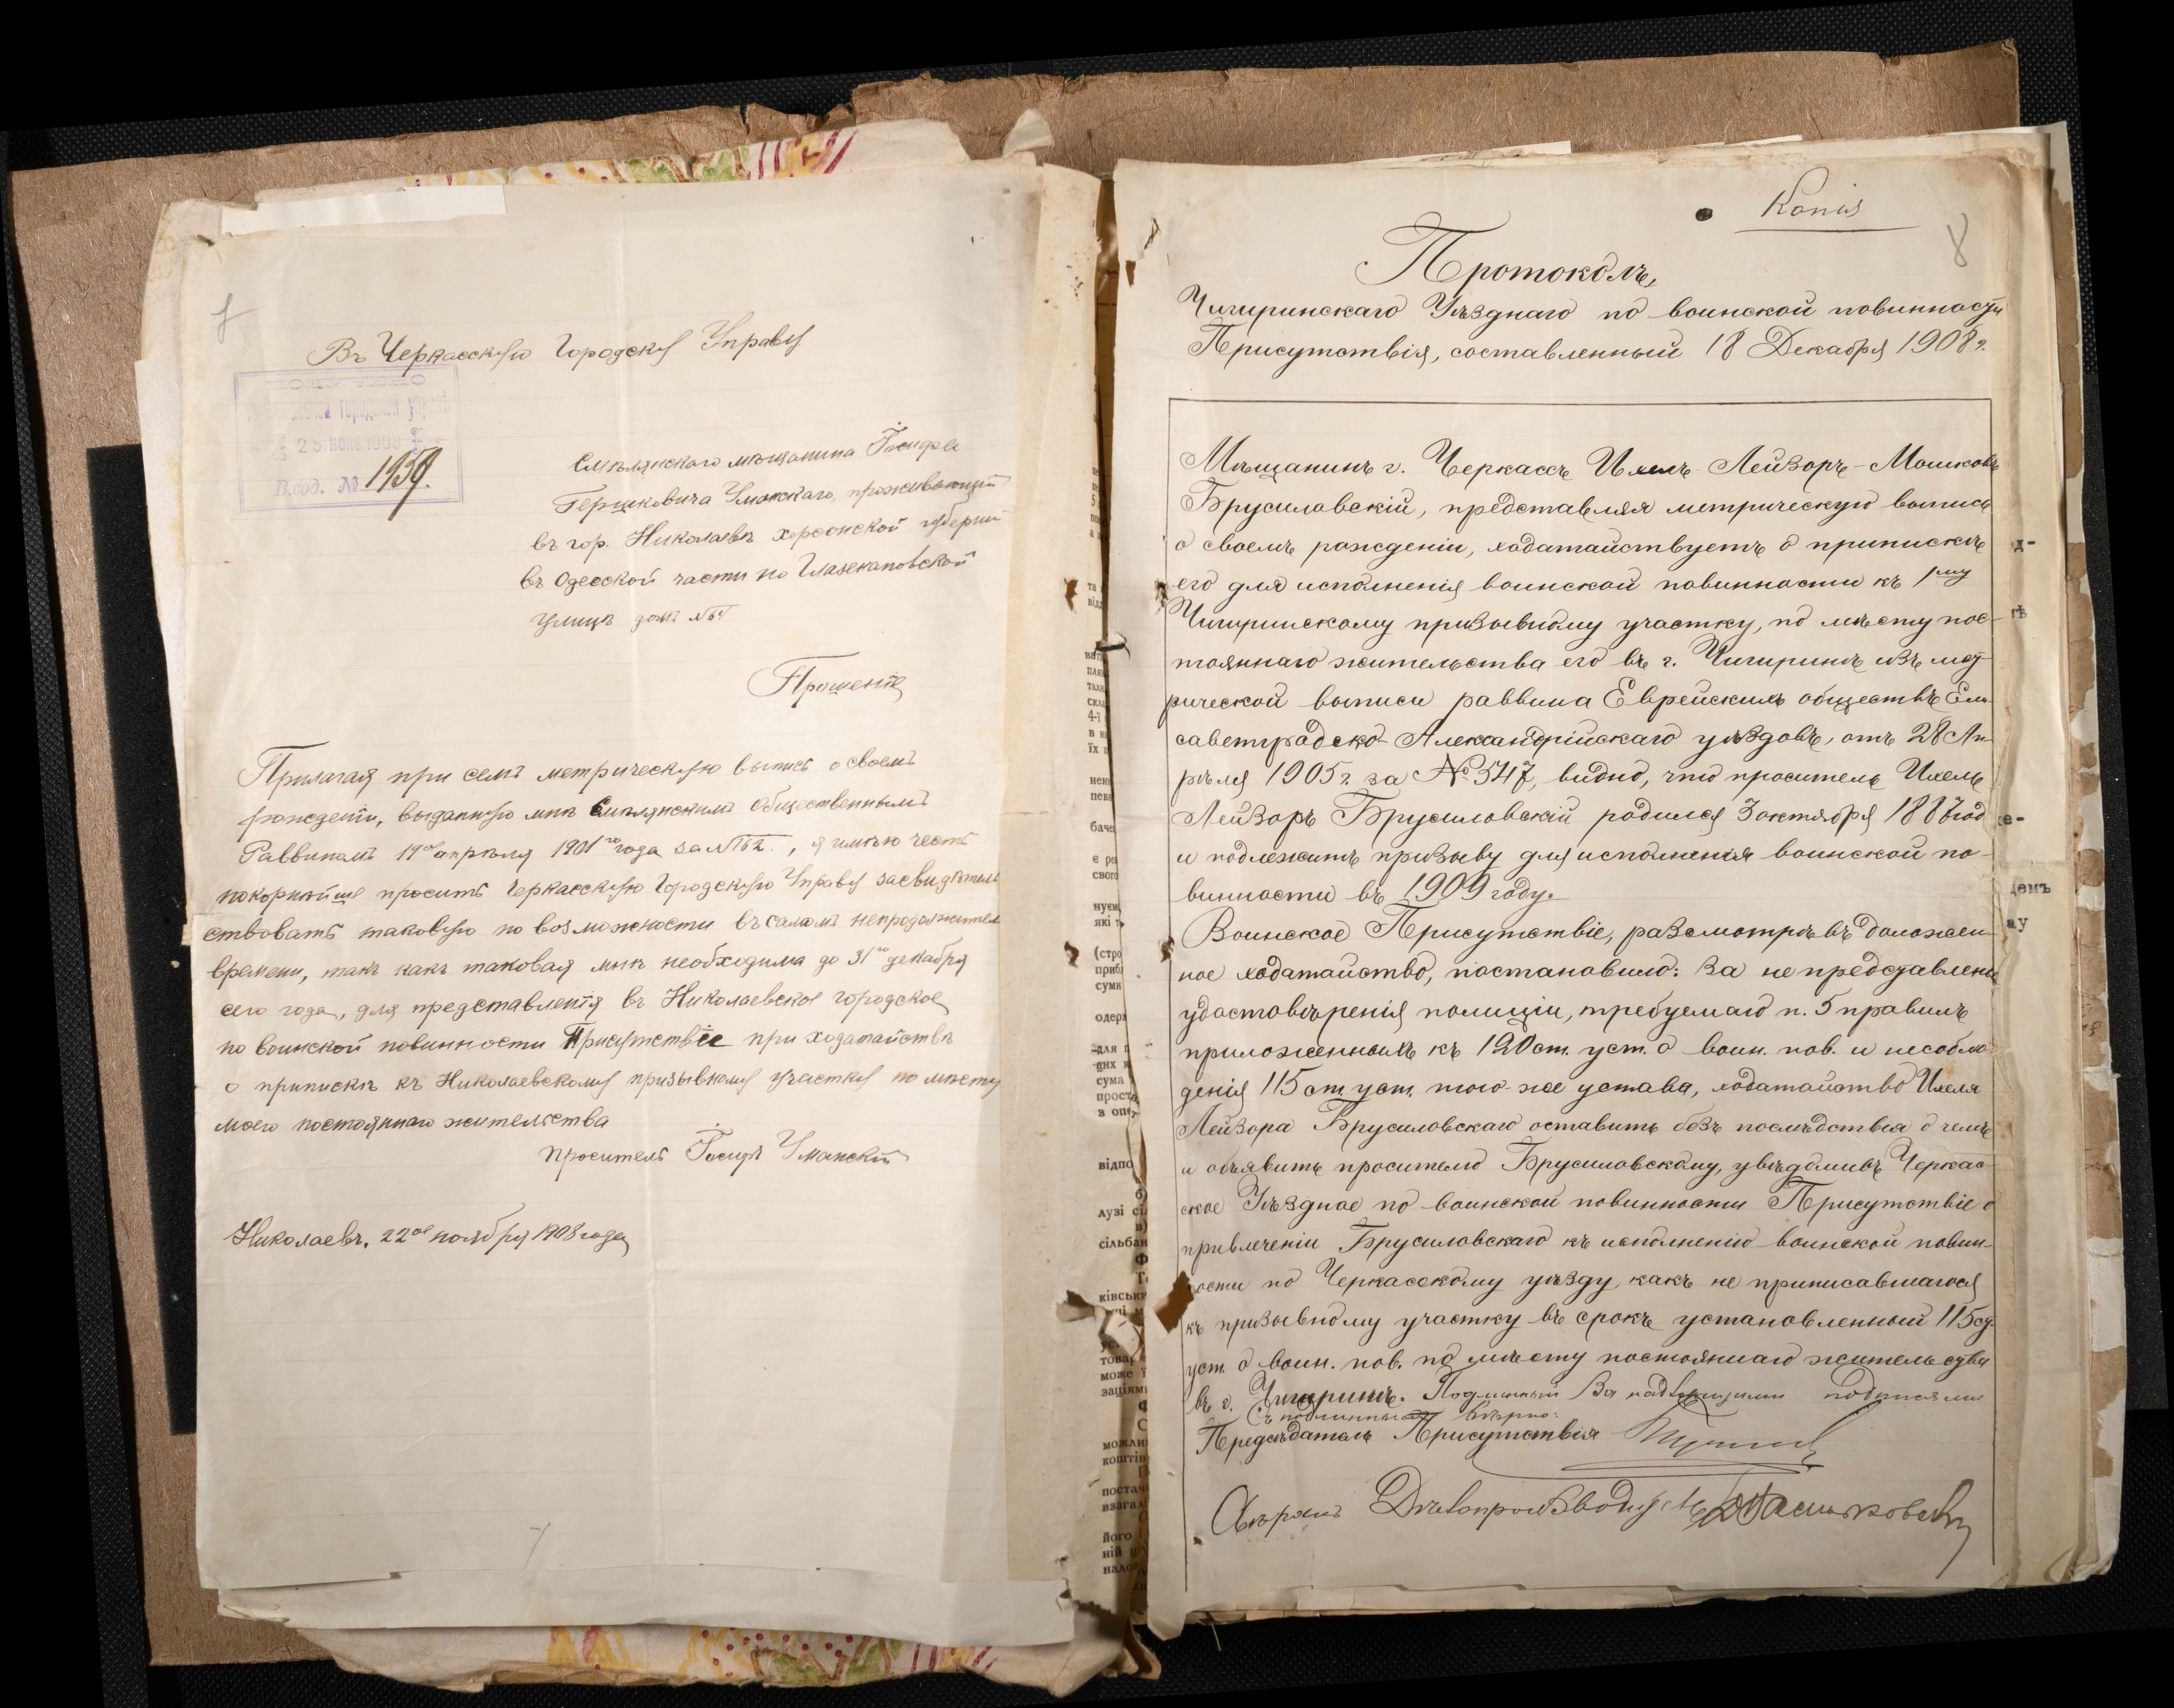 Въ Черкасскую Городскую Управу
Городской
25 НОЯБ 1908
Вход. № 1959.
Смѣлянскаго мѣщанина Іосифа
Гершковича Уманскаго, проживающій
въ гор. Николаевѣ Херсонской губерніи
въ Одесской части по Глазенаповской
улицѣ домъ №
Прошеніе
Прилагая при семъ метрическую выпись о своемъ
рожденіи, выданную мнѣ Смѣлянскимъ Общественнымъ
Раввиномъ 19го апрѣля 1901го года за № 62., я имѣю честь
покорнѣйше просить Черкасскую Городскую Управу засвидѣтель
ствовать таковую по возможности въ самомъ непродолжител
времени, такъ какъ таковая мнѣ необходима до 31го декабря
сего года, для представленія въ Николаевское городское
по воинской повинности Присутствіе при ходатайствѣ
о припискѣ къ Николаевскому призывному участку по мѣсту
моего постояннаго жительства
Проситель Іосифъ Уманскій
Николаевъ. 22ое ноября 1908 года
7
Копія
8
Протоколъ,
Чигиринскаго Уѣзднаго по воинской повинности
Присутствія, составленный 18 Декабря 1908 г.
Мѣщанинъ г. Черкассъ Ихель-Лейзоръ-Мошковъ
Брусиловскій, представляя метрическую выпись
о своемъ рожденіи, ходатайствуетъ о припискѣ
его для исполненія воинской повинности къ 1му
Чигиринскому призывному участку, по мѣсту пос-
тояннаго жительства его въ г. Чигиринѣ изъ мет
рической выписи раввина Еврейскихъ обществъ Ели
саветградско-Александрійскаго уѣздовъ, отъ 28 Ап-
рѣля 1905 г. за № 547, видно, что проситель Ихель
Лейзоръ Брусиловскій родился 3 октября 1887 год
и подлежитъ призыву для исполненія воинской по-
винности въ 1909 году.
Воинское Присутствіе, разсмотрѣвъ доложен-
ное ходатайство, постановило: за не представлені
удостовѣренія полиціи, требуемаго п. 5 правилъ
приложенныхъ къ 120 ст. уст. о воин. пов. и несоблю
денія 115 ст. уст. того-же устава, ходатайство Ихеля
Лейзора Брусиловскаго оставить безъ послѣдствія о чемъ
и объявить просителю Брусиловскому, увѣдомивъ Черкас-
ское Уѣздное по воинской повинности Присутствіе о
привлеченіи Брусиловскаго къ исполненію воинской повин-
ности по Черкасскому уѣзду, какъ не приписавшагося
къ призывному участку въ срокъ установленный 115 ст.
уст. о воин. пов. по мѣсту постояннаго жительства
въ г. Чигиринѣ. Подлинный за надлежащими подписями
Съ подлиннымъ вѣрно:
Предсѣдатель Присутствія
Свѣрялъ Дѣлопроизводитель